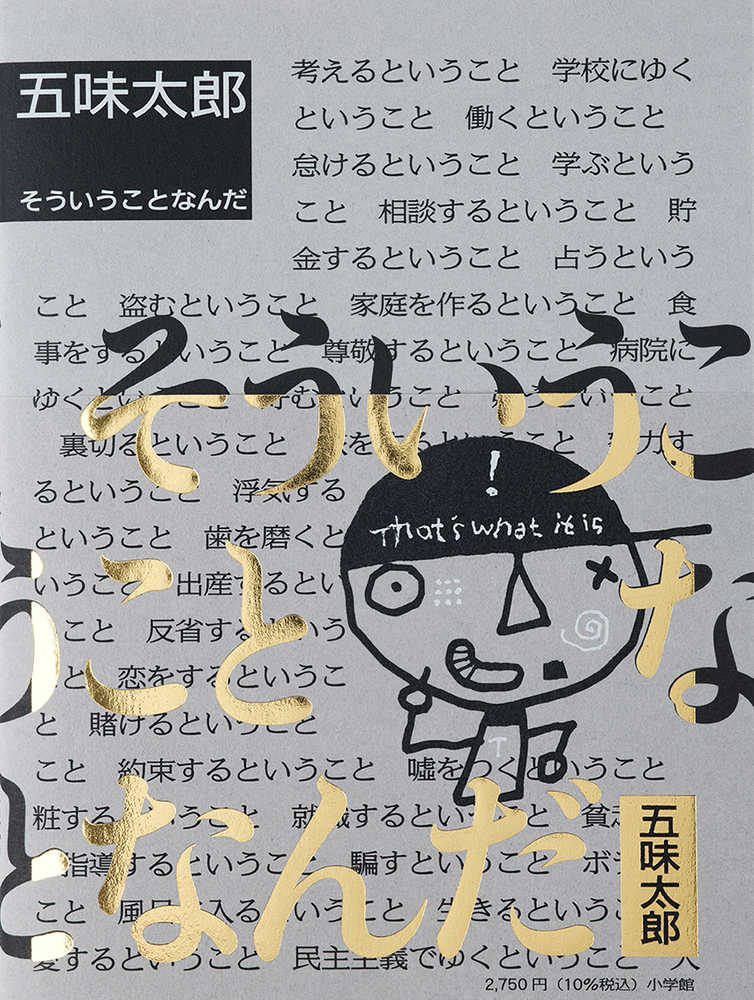 五味太郎
そういうことなんだ
考えるということ 学校にゆく
ということ 働くということ
怠けるということ 学ぶという
こと 相談するということ 貯
金するということ 占うという
こと 盗むということ 家庭を作るということ 食
事をするということ 尊敬するということ 病院に
ゆくということ むということ ということ
裏切るということ
るということ 浮気する
ということ 歯を磨くと
いうこと 出産するとい
うこと 反省するという
こと 恋をするというこ
と 賭けるということ
こと 約束するということ 嘘をつくということ
粧するということ 就職するということ 貧
指導するということ 騙すということ ボ
こと 風呂に入るということ 生きるというこ
愛するということ 民主主義でゆくということ 人
そういうこ
うことな
となんだ
!
That's what it is
T
五味太郎
2,750円(10%税込)小学館